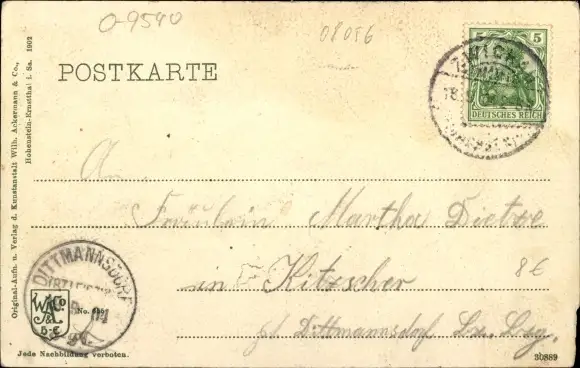 0-9540
08056
POSTKARTE
5 5
DEUTSCHES REICH
ZWICKAU
18
Original-Aufn. u. Verlag d. Kunstanstalt Wilh. Ackermann & Co.,
Hohenstein-Ernstthal i. Sa. 1902
A
Fräulein Martha Dietze
in Kitzscher
8€
p/ Dittmannsdorf Bz. Lzg.
DITTMANNSDORF
W. A. & Co.
No. 680
Jede Nachbildung verboten.
30889